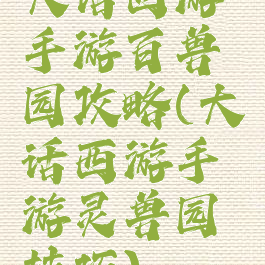 大话西游
手游百兽
园攻略(大
话西游手
游灵兽园
技巧)